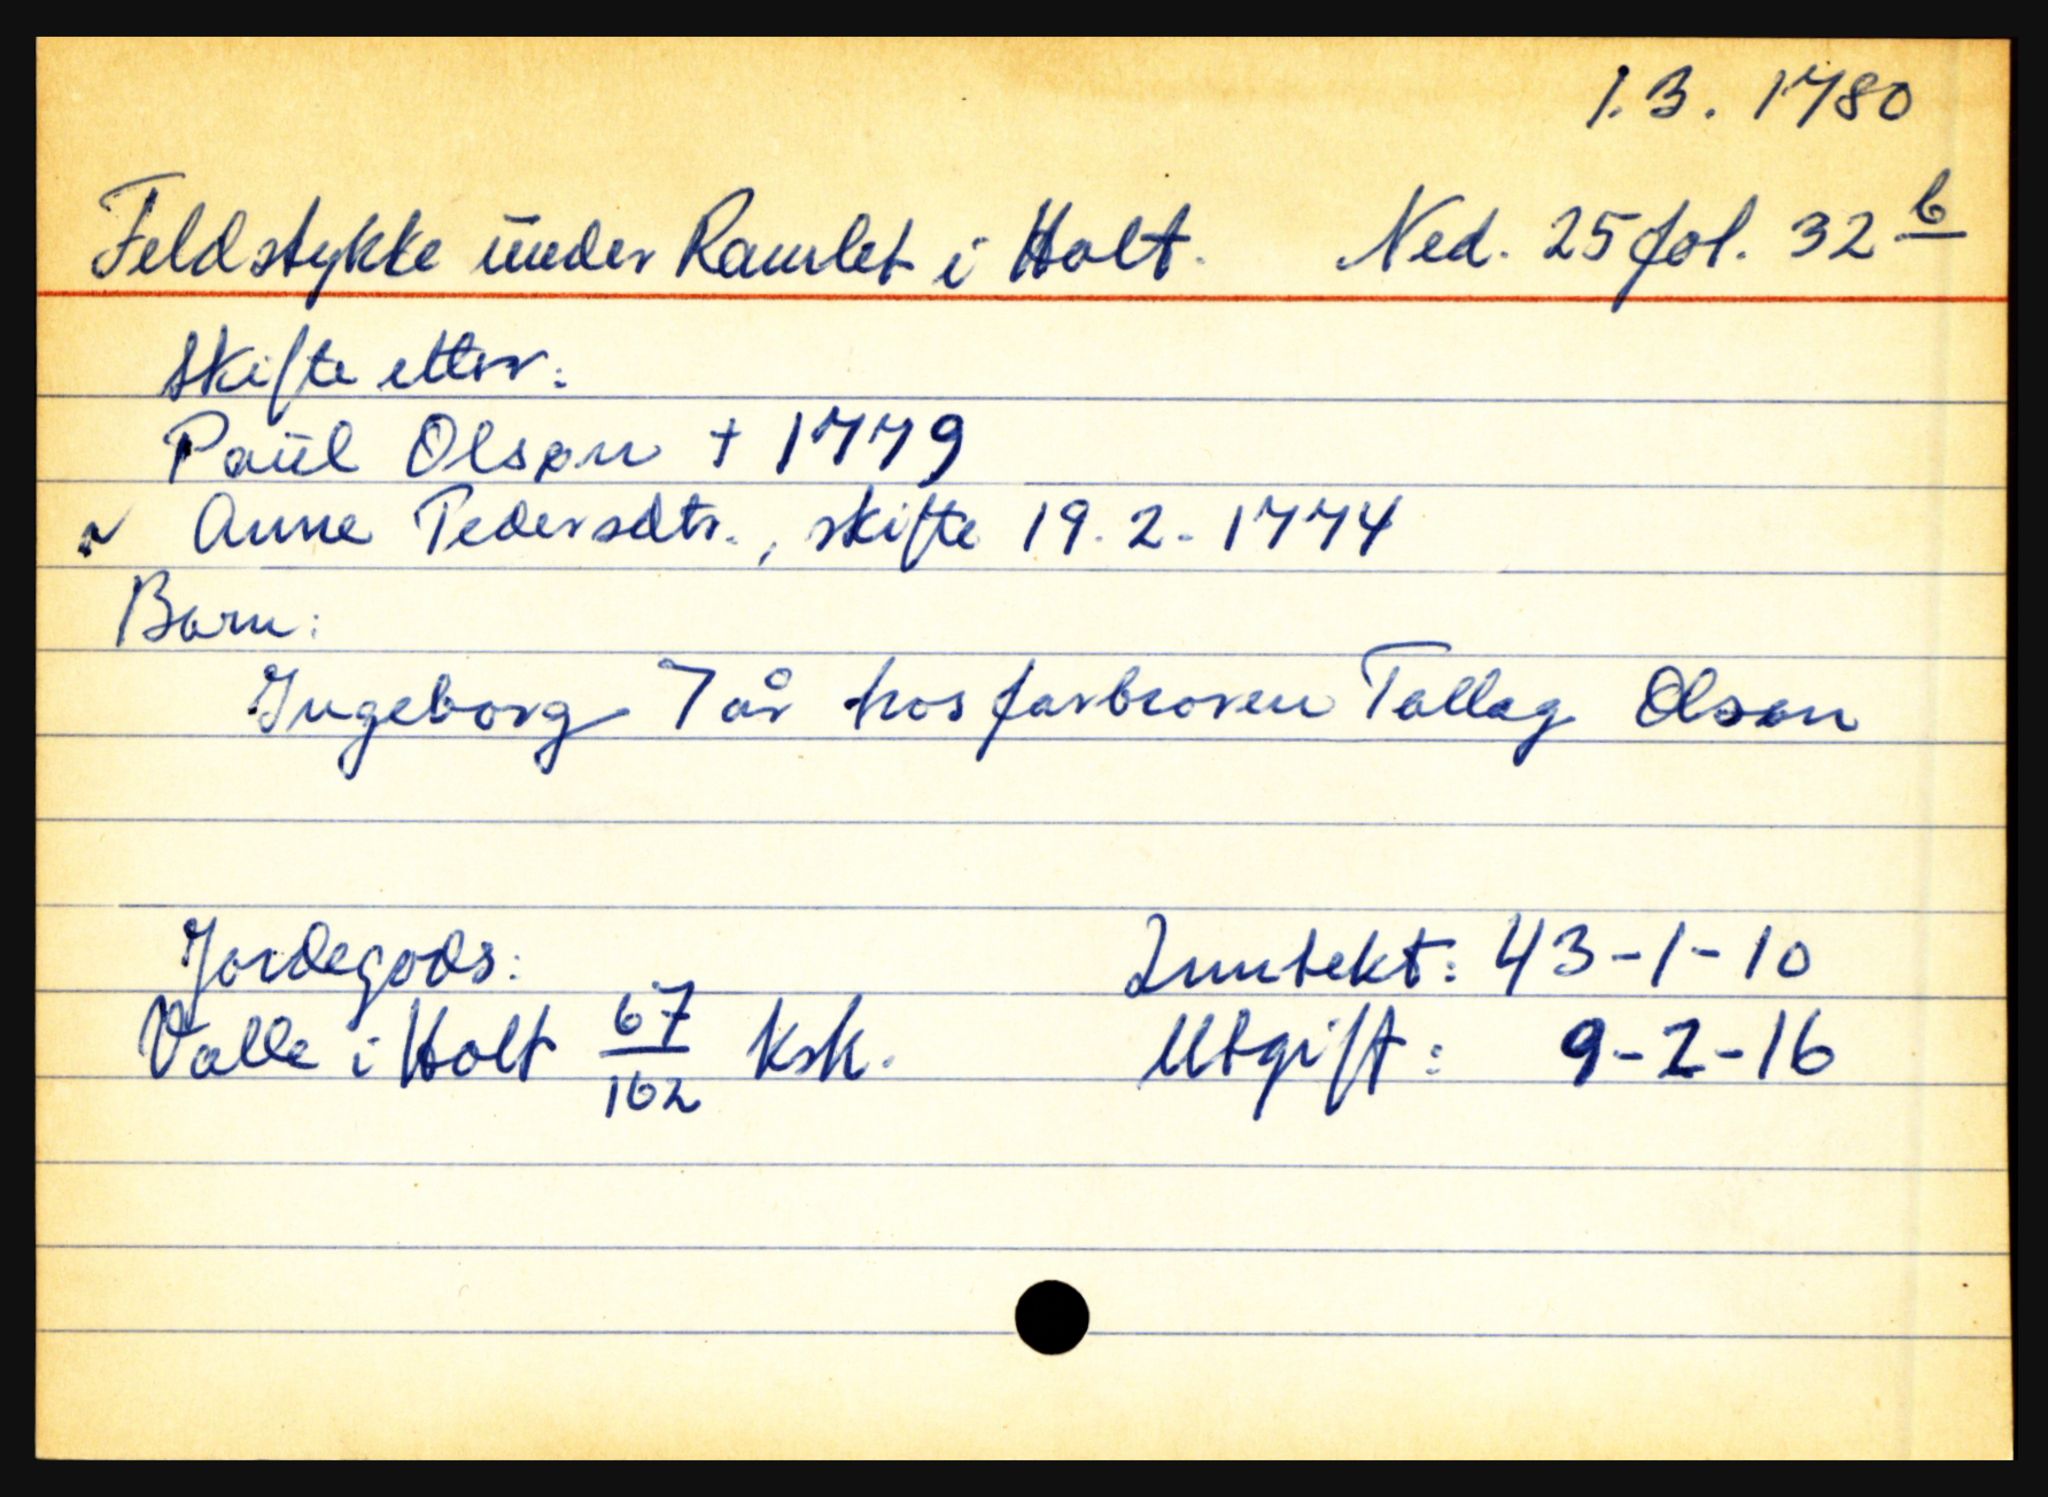 1.3.1780
Feldstykke under Ramlet i Holt. Ned. 25 fol. 32 b
Skifte etter:
Paul Olson + 1779
~ Anne Pedersdtr., skifte 19.2.1774
Barn:
Ingeborg 7 år hos farbroren Tallag Olson
Jordegods: Inntekt: 43-1-10
Valle i Holt 67/162 Ksk. Utgift: 9-2-16